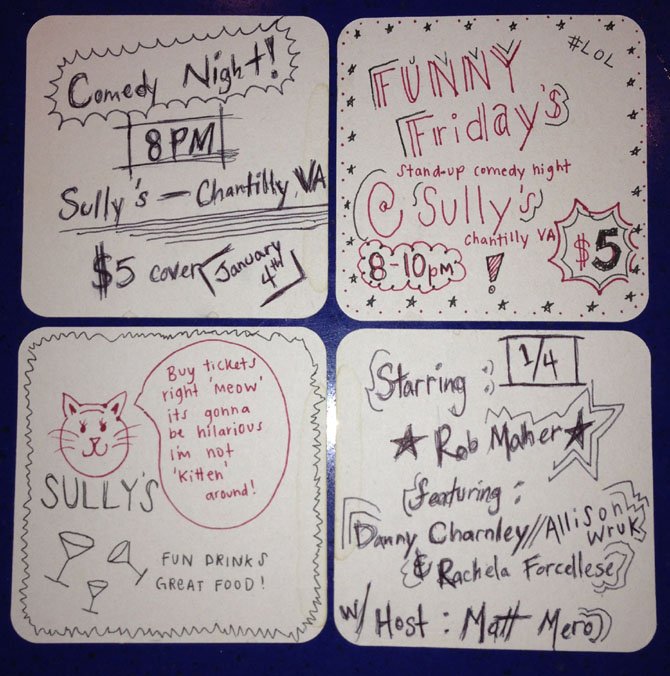 Comedy Night!
8PM
Sully's — Chantilly VA
$5 cover
January
4th
#LOL
FUNNY
Friday's
Stand-up comedy night
@ Sully's
chantilly VA
$5
8-10pm !
Buy tickets
right 'meow'
its gonna
be hilarious
i'm not
'kitten'
around!
SULLY'S
FUN DRINKS
GREAT FOOD!
Starring :
1/4
★ Rob Maher ★
featuring :
Danny Charnley//Allison
Wruk
& Rachela Forcellese
w/ Host : Matt Mero